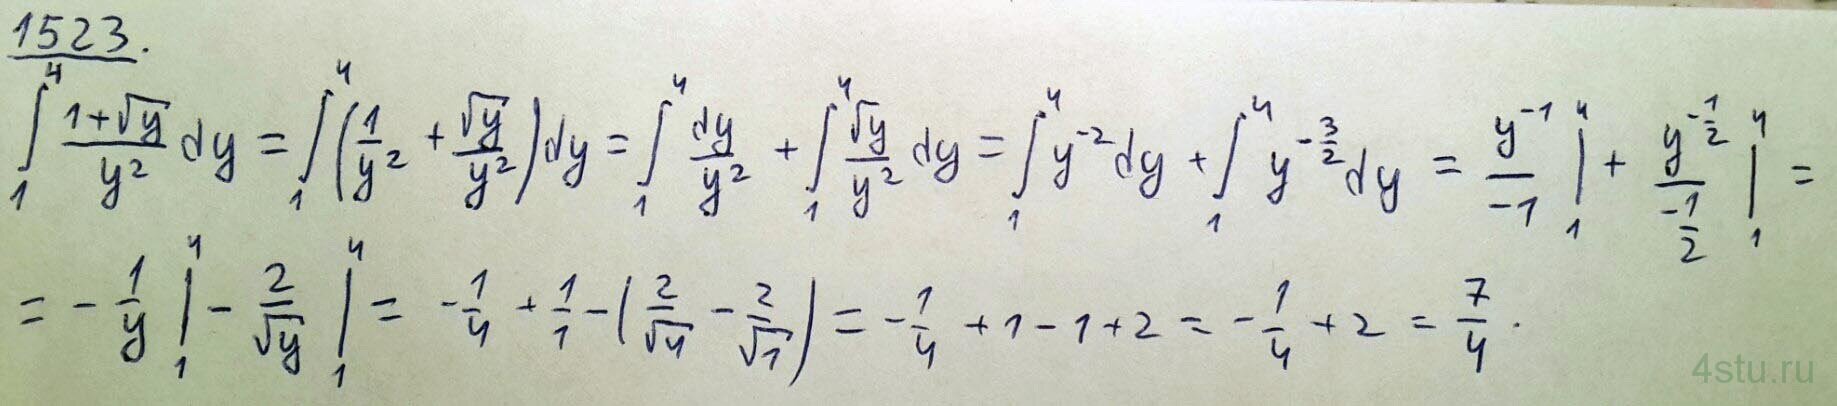 1523.
∫₁⁴ (1+√y)/y² dy = ∫₁⁴ (1/y² + √y/y²) dy = ∫₁⁴ dy/y² + ∫₁⁴ √y/y² dy = ∫₁⁴ y⁻² dy + ∫₁⁴ y^(-3/2) dy = y⁻¹/-1 |₁⁴ + y^(-1/2)/(-1/2) |₁⁴ =
= - 1/y |₁⁴ - 2/√y |₁⁴ = -1/4 + 1/1 - (2/√4 - 2/√1) = -1/4 + 1 - 1 + 2 = -1/4 + 2 = 7/4.
4stu.ru